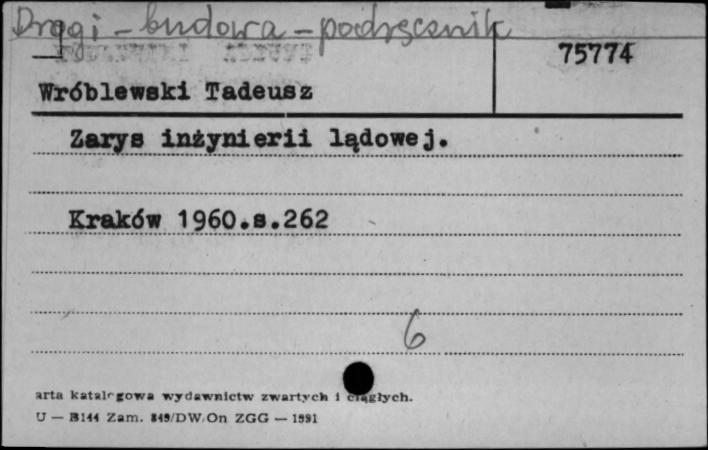 Drogi - budowa - podręcznik
75774
Wróblewski Tadeusz
Zarys inżynierii lądowej.
Kraków 1960.s.262
6
arta katalogowa wydawnictw zwartych i ciągłych.
U — B144 Zam. 849/DW/On ZGG — 1991